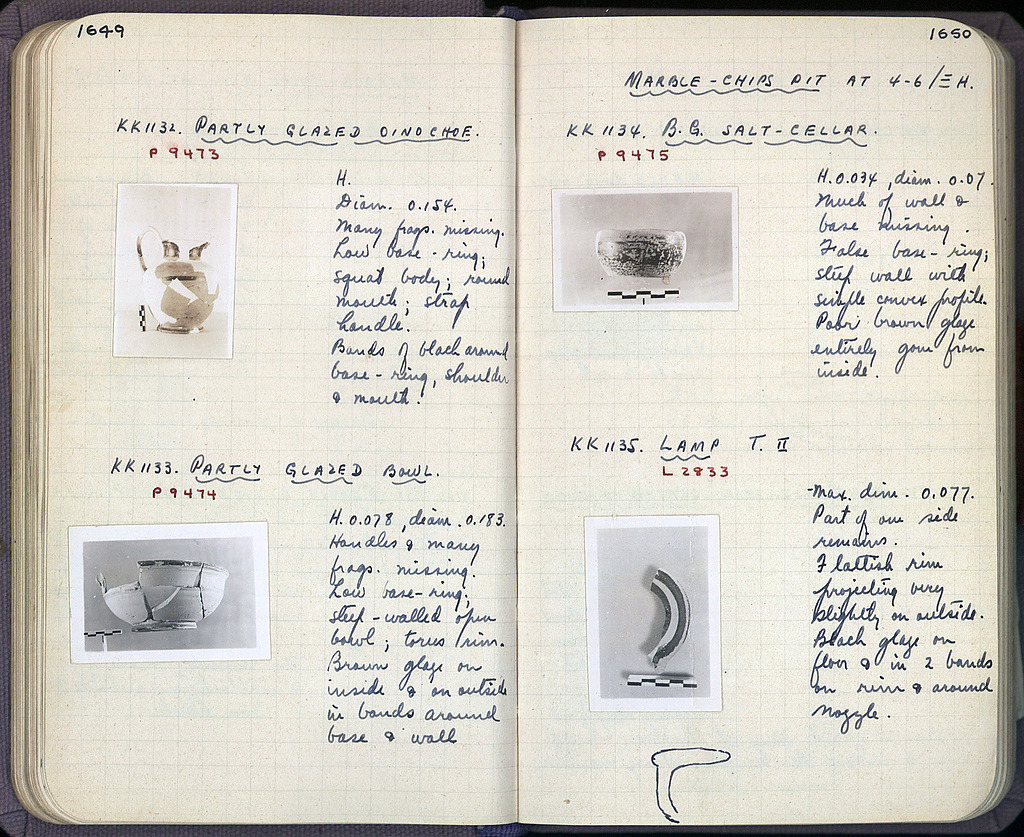 1649
KK1132. PARTLY GLAZED OINOCHOE.
P 9473
H.
Diam. 0.154.
Many frags. missing.
Low base-ring;
squat body; round
mouth; strap
handle.
Bands of black around
base-ring, shoulder
& mouth.
KK1133. PARTLY GLAZED BOWL.
P 9474
H. 0.078, diam. 0.183.
Handles & many
frags. missing.
Low base-ring;
steep-walled open
bowl; torus rim.
Brown glaze on
inside & on outside
in bands around
base & wall
1650
MARBLE-CHIPS PIT AT 4-6/Ξ H.
KK1134. B.G. SALT-CELLAR.
P 9475
H. 0.034, diam. 0.07.
Much of wall &
base missing.
False base-ring;
steep wall with
simple convex profile.
Poor brown glaze
entirely gone from
inside.
KK1135. LAMP T. II
L 2833
Max. dim. 0.077.
Part of one side
remains.
Flattish rim
projecting very
slightly on outside.
Black glaze on
floor & in 2 bands
on rim & around
nozzle.